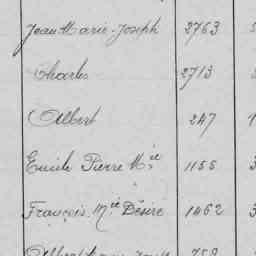 Jean Marie Joseph 2763
Charles 2713
Albert 247
Emile Pierre Mie 1155 3
François Mie Désiré 1462 3